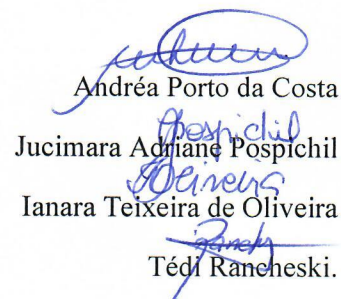 Andréa Porto da Costa
Pospichil
Jucimara Adriane Pospichil
Ianara Teixeira de Oliveira
Tédi Rancheski.